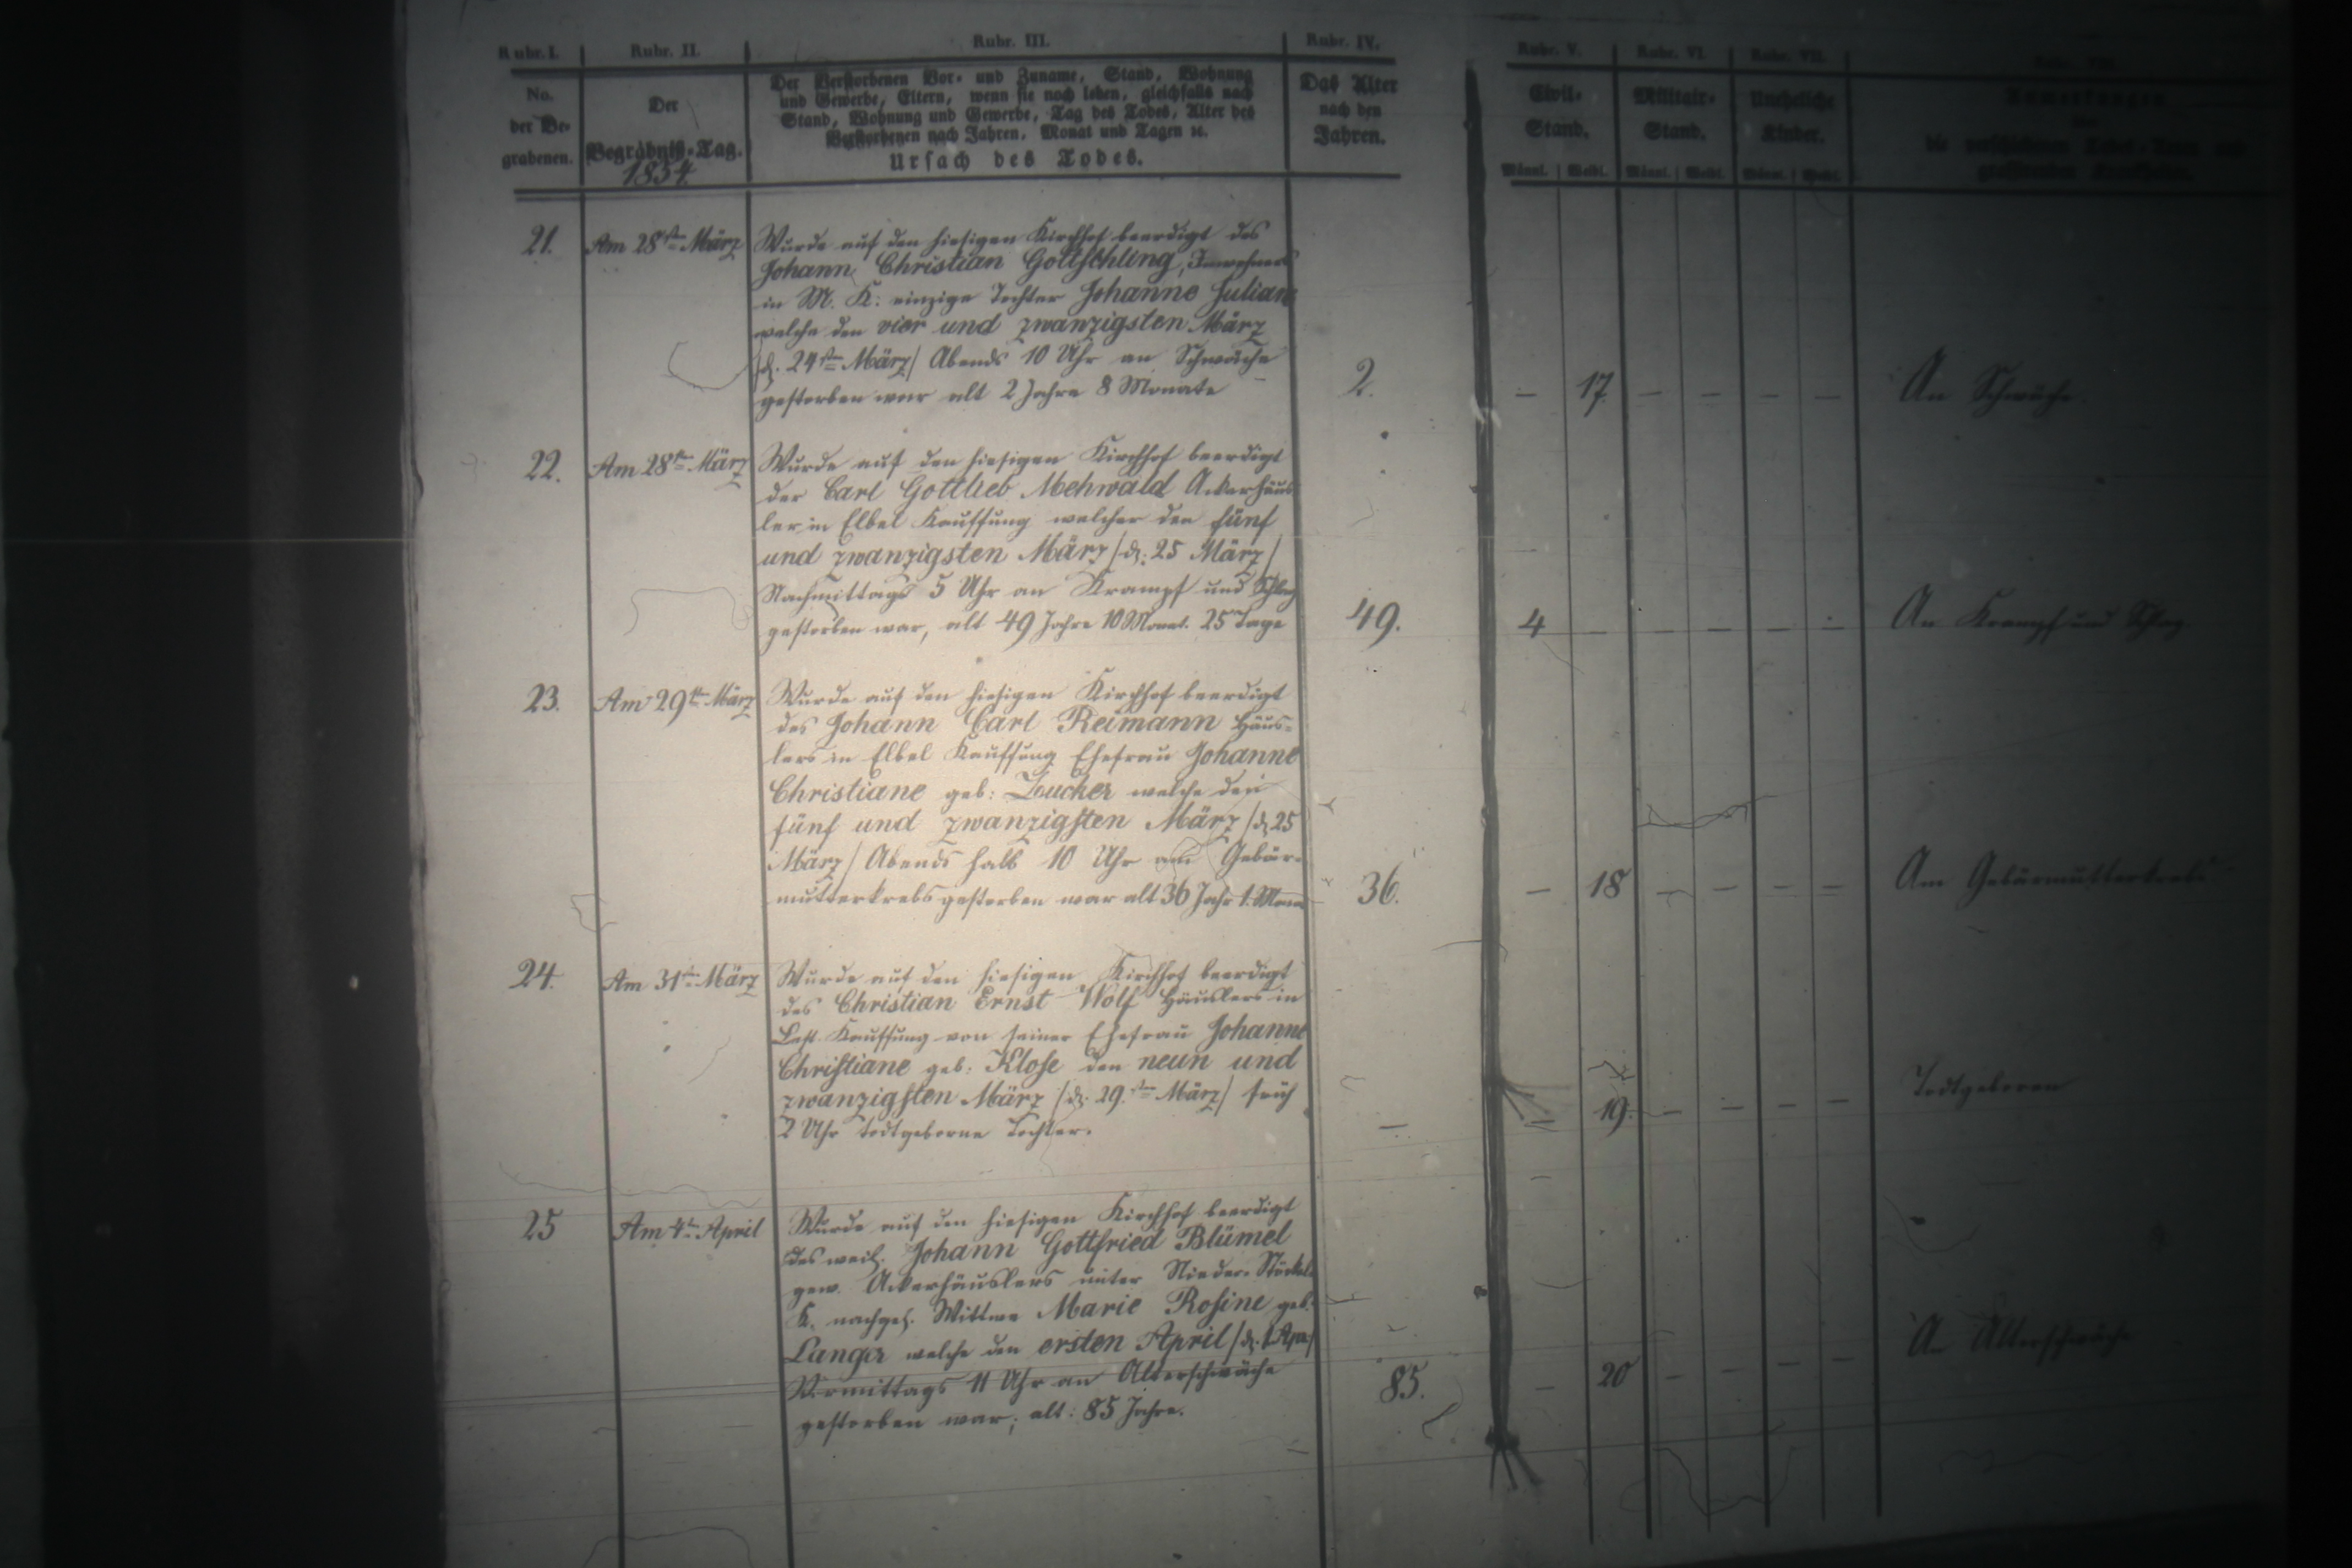 Rubr. I. Rubr. II. Rubr. III. Rubr. IV. Rubr. V. Rubr. VI. Rubr. VII.
No. der Be- grabenen.
Der Begräbniß-Tag.
1854.
Der Verstorbenen Vor- und Zuname, Stand, Wohnung
und Gewerbe, Eltern, wenn sie noch leben, gleichfalls nach
Stand, Wohnung und Gewerbe, Tag des Todes, Alter des
Verstorbenen nach Jahren, Monat und Tagen ꝛc.
Ursach des Todes.
Das Alter
nach den
Jahren.
Civil-
Stand.
Militair-
Stand.
Uneheliche
Kinder.
Männl. Weibl. Männl. Weibl. Männl. Weibl.
21. Am 28sten März
Wurde auf den hiesigen Kirchhof beerdigt des
Johann Christian Gottschling, Inwohners
in M. K: einzige Tochter Johanne Juliane
welche den vier und zwanzigsten März
/d. 24sten März/ Abends 10 Uhr an Schwäche
gestorben war alt 2 Jahre 8 Monate
2. — 17. — — — — An Schwäche.
22. Am 28sten März
Wurde auf den hiesigen Kirchhof beerdigt
der Carl Gottlieb Mehwald Ackerhäus
ler in Elbel Kauffung welcher den fünf
und zwanzigsten März /d: 25 März/
Nachmittags 5 Uhr an Krampf und Schlag
gestorben war, alt 49 Jahre 10 Monat. 25 Tage
49. 4 — — — — — An Krampf und Schlag
23. Am 29sten März
Wurde auf den hiesigen Kirchhof beerdigt
des Johann Carl Reimann Häus-
lers in Elbel Kauffung Ehefrau Johanne
Christiane geb: Zucker welche den
fünf und zwanzigsten März /d. 25
März/ Abends halb 10 Uhr am Gebär-
mutterkrebs gestorben war alt 36 Jahr 1. Monat
36. — 18 — — — — Am Gebärmutterkrebs
24. Am 31sten März
Wurde auf den hiesigen Kirchhof beerdigt
des Christian Ernst Wolf Häuslers in
Lest. Kauffung von seiner Ehefrau Johanne
Christiane geb: Klose den neun und
zwanzigsten März /d. 29.sten März/ früh
2 Uhr todtgeborne Tochter.
— — 19. — — — — Todtgeboren
25 Am 4ten April
Wurde auf den hiesigen Kirchhof beerdigt
des weil. Johann Gottfried Blümel
gew. Ackerhäuslers unter Nieder-Stöckel
K. nachgel. Wittwe Marie Rosine geb.
Langer welche den ersten April /d. 1 Apr/
Vormittags 11 Uhr an Alterschwäche
gestorben war; alt: 85 Jahre.
85. — 20 — — — — An Alterschwäche